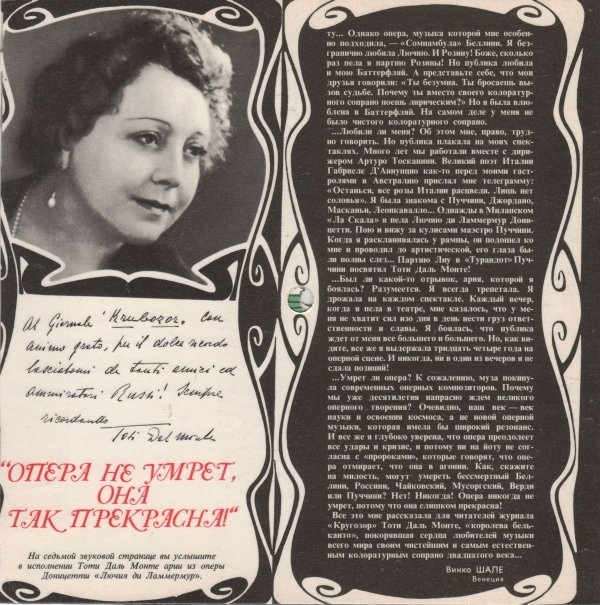 Al Giornale "Krubozor", con
animo grato, per il dolce ricordo
lasciatomi da tanti amici ed
ammiratori Russi! Sempre
ricordando
Toti Dal Monte
"ОПЕРА НЕ УМРЕТ,
ОНА
ТАК ПРЕКРАСНА!"
На седьмой звуковой странице вы услышите
в исполнении Тоти Даль Монте арии из оперы
Доницетти «Лючия ди Ламмермур».
ту... Однако опера, музыка которой мне особен-
но подходила, — «Сомнамбула» Беллини. Я без-
гранично любила Лючию. И Розину! Боже, сколько
раз пела я партию Розины! Но публика любила
и мою Баттерфляй. А представьте себе, что мои
друзья говорили: «Ты безумна. Ты бросаешь вы-
зов судьбе. Почему ты вместо своего колоратур-
ного сопрано поешь лирическим?» Но я была влю-
блена в Баттерфляй. На самом деле у меня не
было чистого колоратурного сопрано.
...Любили ли меня? Об этом мне, право, труд-
но говорить. Но публика плакала на моих спек-
таклях. Много лет мы работали вместе с дири-
жером Артуро Тосканини. Великий поэт Италии
Габриеле Д'Аннунцио как-то перед моими гаст-
ролями в Австралию прислал мне телеграмму:
«Останься, все розы Италии расцвели. Лишь нет
соловья». Я была знакома с Пуччини, Джордано,
Масканьи, Леонкавалло... Однажды в Миланском
«Ла Скала» я пела Лючию ди Ламмермур Дони-
цетти. Пою и вижу за кулисами маэстро Пуччини.
Когда я раскланивалась у рампы, он подошел ко
мне и проводил до артистической, его глаза бы-
ли полны слез... Партию Лиу в «Турандот» Пуч-
чини посвятил Тоти Даль Монте!
...Был ли какой-то отрывок, ария, которой я
боялась? Разумеется. Я всегда трепетала. Я
дрожала на каждом спектакле. Каждый вечер,
когда я пела в театре, мне казалось, что у ме-
ня не хватит сил изо дня в день нести груз от-
ветственности и славы. Я боялась, что публика
ждет от меня все большего и большего. Но, как ви-
дите, все же я выдержала тридцать четыре года на
оперной сцене. И никогда, ни в один из вечеров я не
сдала позиций!
...Умрет ли опера? К сожалению, муза покину-
ла современных оперных композиторов. Почему
мы уже десятилетия напрасно ждем великого
оперного творения? Очевидно, наш век — век
науки и освоения космоса, а не новой оперной
музыки, которая имела бы широкий резонанс.
И все же я глубоко уверена, что опера преодолеет
все удары и кризис, и потому ни на йоту не сог-
ласна с «пророками», которые говорят, что опе-
ра отмирает, что она в агонии. Как, скажите
на милость, могут умереть бессмертный Бел-
лини, Россини, Чайковский, Мусоргский, Верди
или Пуччини? Нет! Никогда! Опера никогда не
умрет, потому что она слишком прекрасна!
Все это мне рассказала для читателей журнала
«Кругозор» Тоти Даль Монте, «королева бель-
канто», покорявшая сердца любителей музыки
всего мира своим чистейшим и самым естествен-
ным колоратурным сопрано двадцатого века...
Винко ШАЛЕ
Венеция